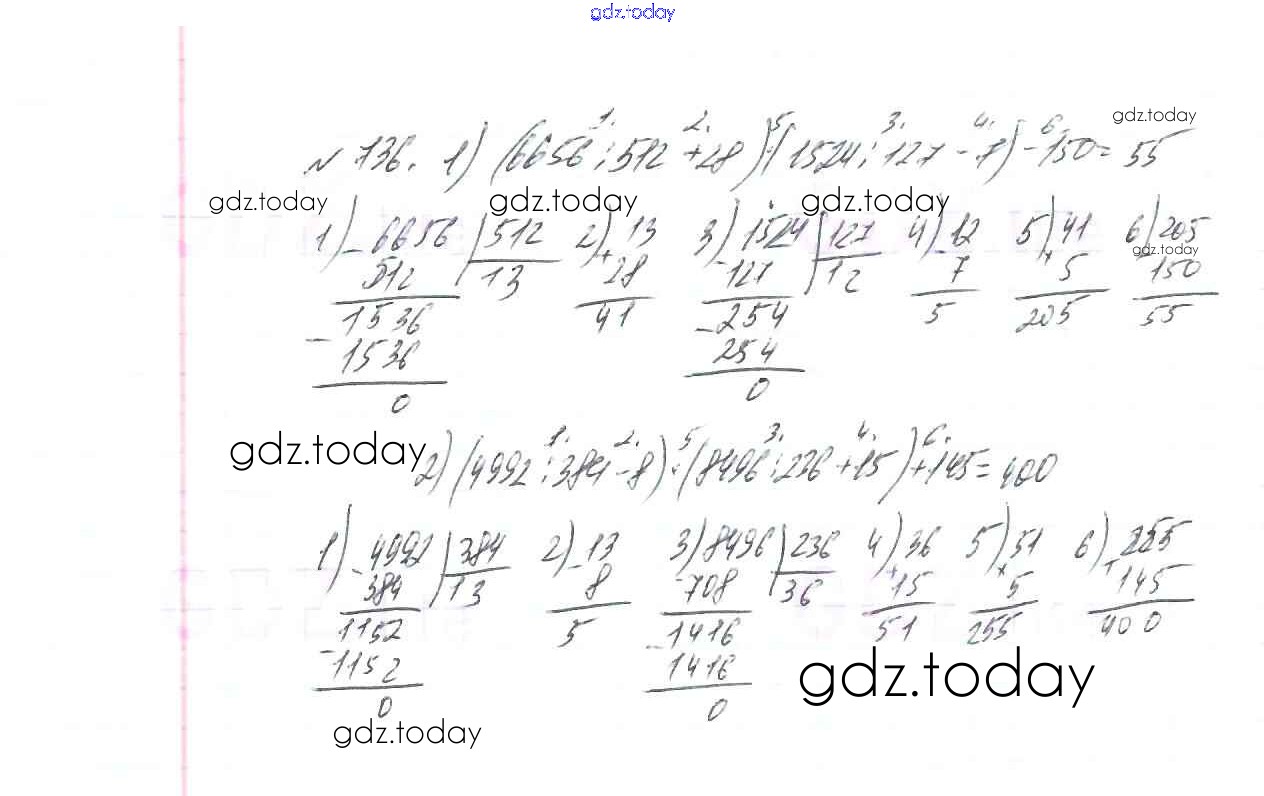 gdz.today
gdz.today
№ 736. 1) (6656 : 512 + 28) · (1524 : 127 - 7) - 150 = 55
1. 2. 5 3. 4. 6.
gdz.today gdz.today gdz.today
1) - 6656 | 512 2) + 13 3) - 1524 | 127 4) - 12 5) × 41 6) 205
gdz.today
512 13 28 127 12 7 5 150
1536 41 - 254 5 205 55
- 1536 254
0 0
gdz.today
1. 2. 5 3. 4. 6.
2) (4992 : 384 - 8) · (8496 : 236 + 15) + 145 = 400
1) - 4992 | 384 2) - 13 3) - 8496 | 236 4) + 36 5) × 51 6) + 255
384 13 8 708 36 15 5 145
1152 5 - 1416 51 255 400
- 1152 1416
0 0
gdz.today
gdz.today